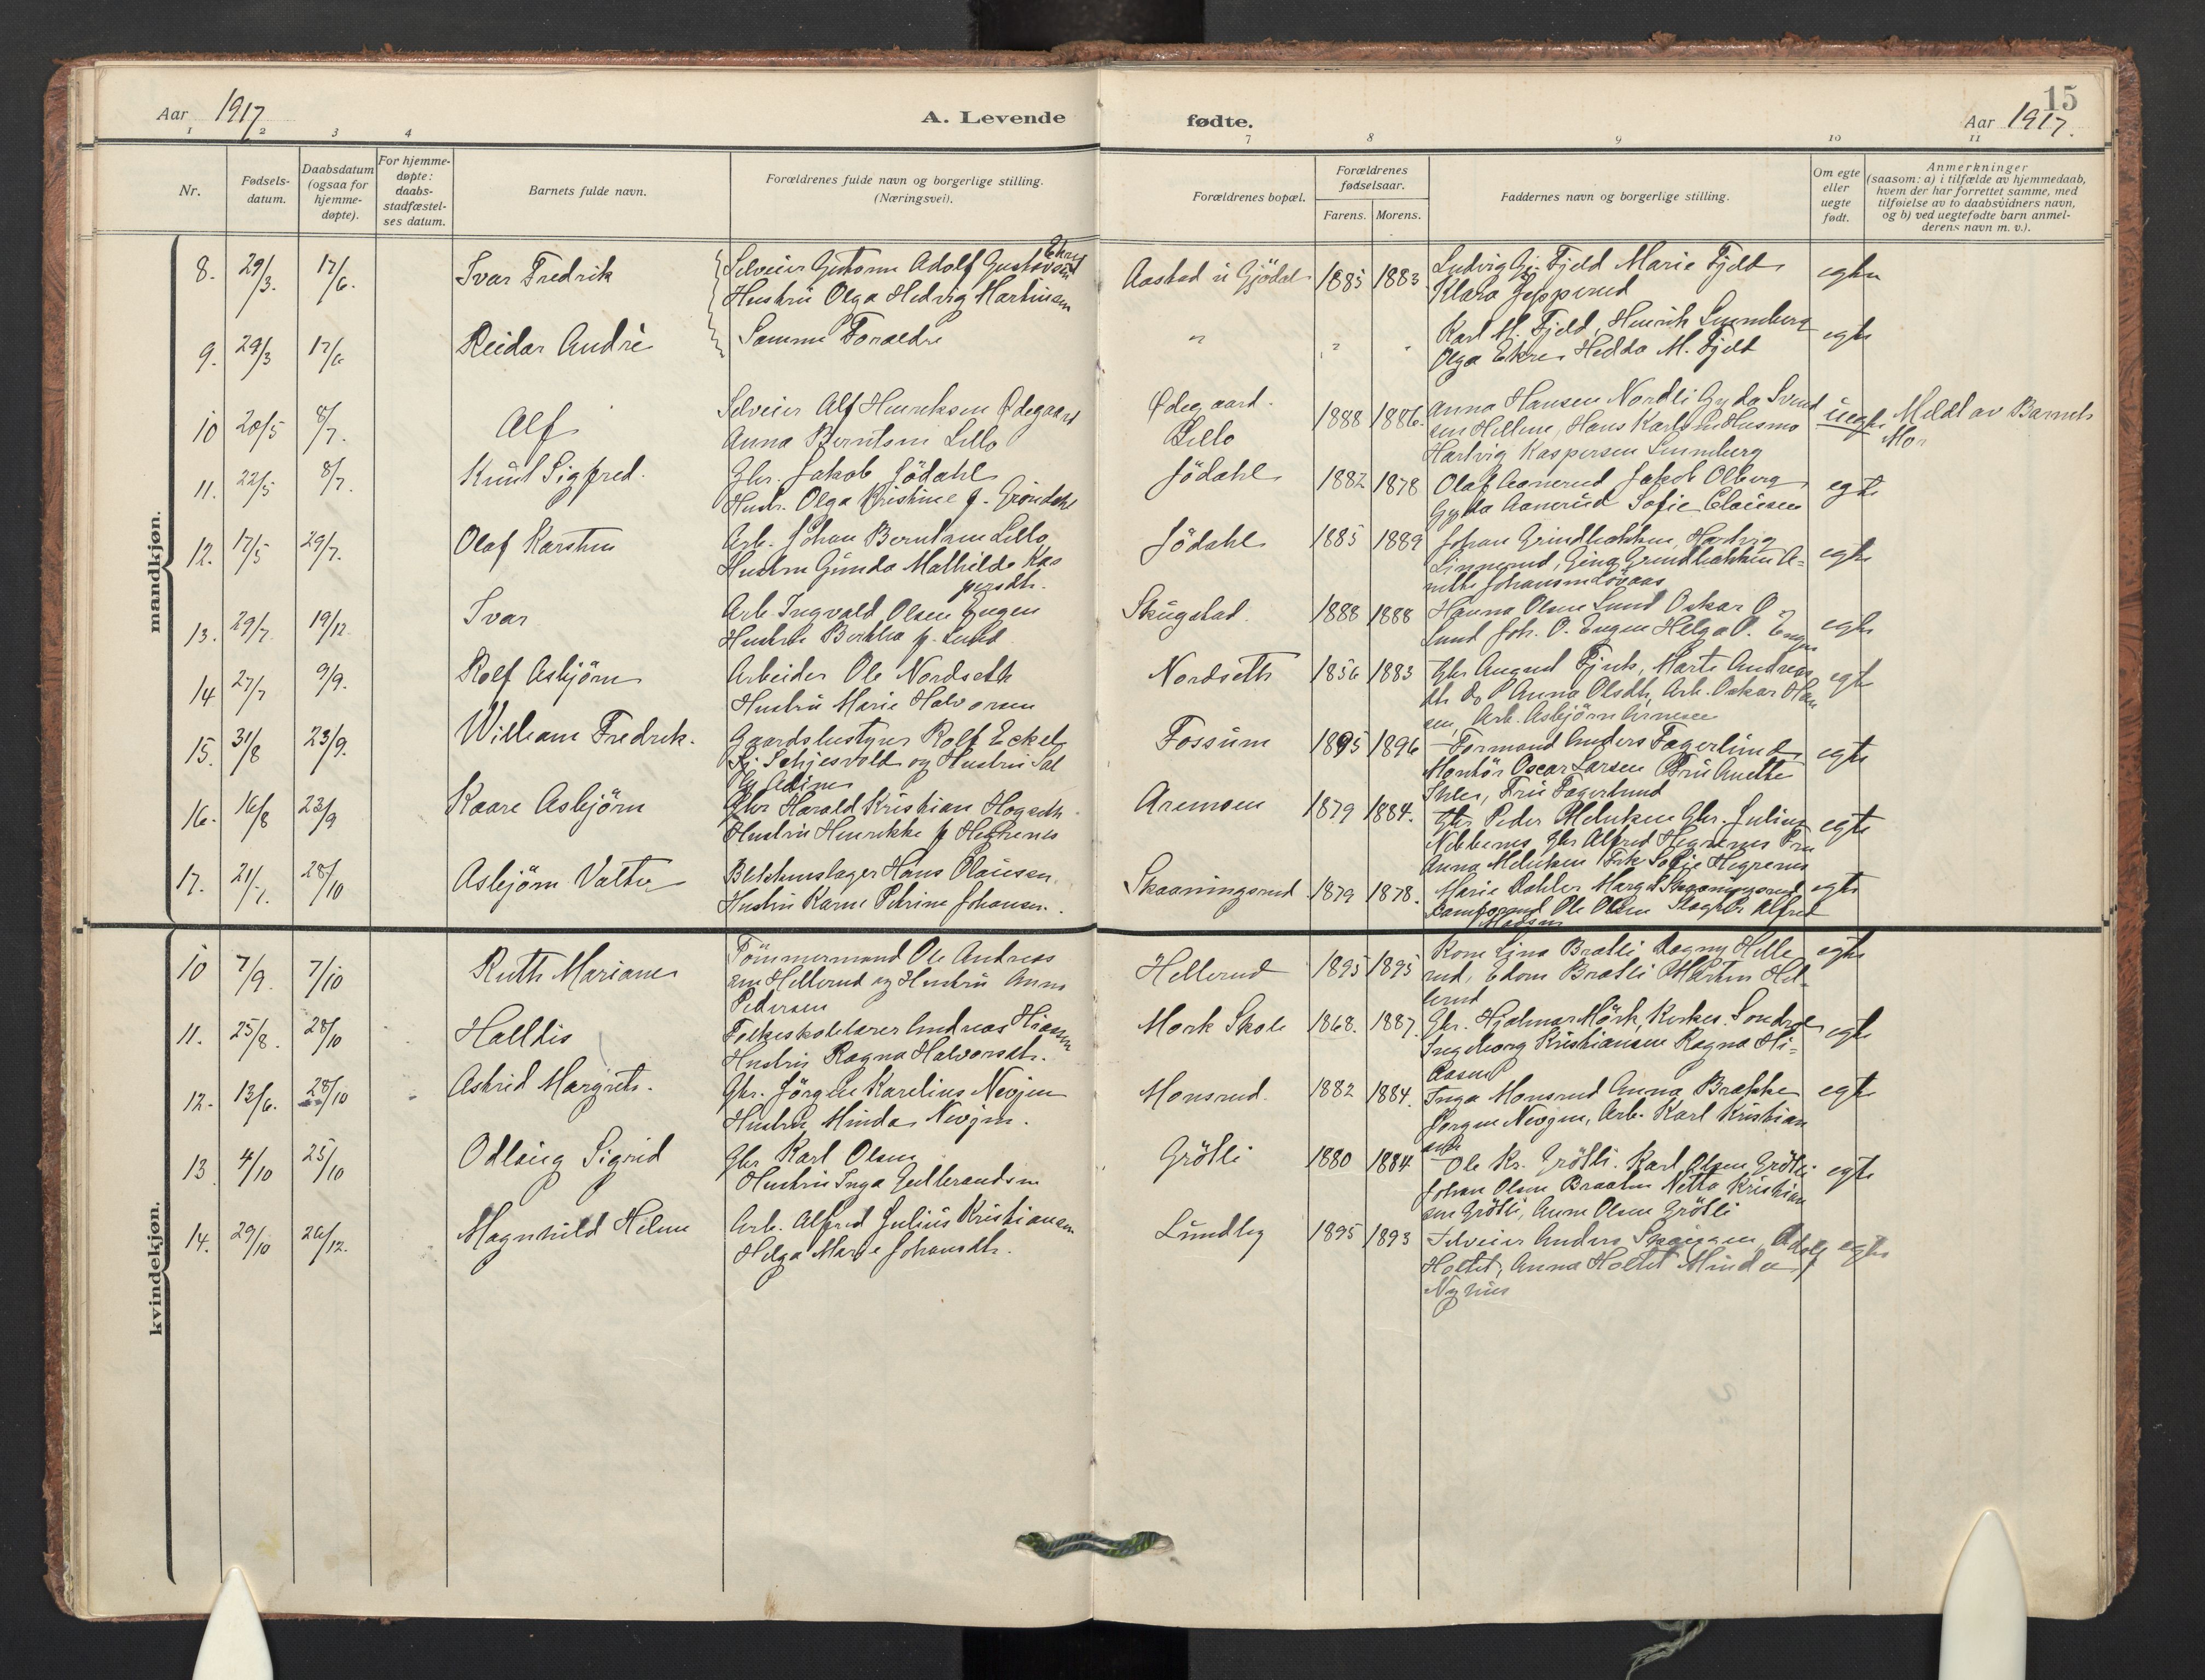 15
Aar 1917
A. Levende fødte.
Aar 1917.
1 2 3 4 7 8 9 10 11
Nr.
Fødsels-
datum.
Daabsdatum
(ogsaa for
hjemme-
døpte).
For hjemme-
døpte:
daabs-
stadfæstel-
ses datum.
Barnets fulde navn.
Forældrenes fulde navn og borgerlige stilling.
(Næringsvei).
Forældrenes bopæl.
Forældrenes
fødselsaar.
Farens. Morens.
Faddernes navn og borgerlige stilling.
Om egte
eller
uegte
født.
Anmerkninger
(saasom: a) i tilfælde av hjemmedaab,
hvem der har forrettet samme, med
tilføielse av to daabsvidners navn,
og b) ved uegtefødte barn anmel-
derens navn m. v.).
mandkjøn.
8. 29/3. 17/6. Ivar Fredrik
Selveier Guttorm Adolf Gustavsen
Hustru Olga Hedvig Martinsen
Aastad i Gjödal 1885 1883
Ludvig Gj. Fjeld Marie Fjeld
Klara Jepperud
egte
9. 29/3 17/6 Reidar Andrè
Samme Foraeldre
" " "
Karl M. Fjeld, Henrik Sunnberg
Olga Ekre Hedda M. Fjeld
egte
10 20/5 8/7. Alf
Selveier Alf Henriksen Ødegaard
Anna Berntsen Lillo
Ødegaard.
Lillo
1888 1886.
Anna Hansen Nordli Gyda Svend
sen Hellene, Hans Karlsen Husmo
Hartvig Kaspersen Sunnberg
uegte Meldt av Barnets
Mor
11. 22/5 8/7. Knut Sigfred.
Gbr. Jakob Jödahl
Hustr. Olga Kristine f. Gröndahl
Jödahl 1882 1878
Olaf Aanerud Jakob Olberg
Gyda Aanerud Sofie Clausen
egte
12. 17/5 29/7. Olaf Karsten
Arb. Johan Berntsen Lillo
Hustru Gunda Mathilde Kas
persdtr.
Jödahl 1885 1889
Johan Grindbakken, Hartvig
Linnerud, Gina Grindbakken A=
nette Johansen Lövaas
egte
13. 29/7. 19/12. Ivar
Arb. Ingvald Olsen Eugen
Hustru Bertha f. Lund
Skugstad. 1888 1888
Hanna Olsen Lund Oskar O.
Lund Joh. O. Eugen Helga O. Eugen
egte
14 27/7 9/9. Rolf Asbjörn
Arbeider Ole Nordseth
Hustru Marie Halvorsen
Nordseth 1856 1883
Gbr August Fjuk, Marte Andreas
dtr Do Anna Olsdtr, Arb. Oskar Han
sen, Arb. Asbjörn Arnesen
egte
15. 31/8 23/9. William Fredrik.
Gaardsbestyrer Rolf Eckel
Fj. Schjesvold og Hustru Sal
ly Adine
Fossum 1895 1896
Formand Anders Fagerlund
Montör Oscar Larsen Fru Anette
Fru Fagerlund
egte
16. 16/8 23/9 Kaare Asbjörn
Gbr Harald Kristian Hogseth
Hustru Henrikke f. Hegrenes
Aremoen 1879 1884.
Gbr Peder Melviken Gbr. Julius
Nibbenes Gbr Alfred Hegrenes Fru
Anna Melviken Frk Sofie Hegrenes
egte
17. 21/7. 28/10 Asbjörn Valter
Blikkenslager Hans Clausen.
Hustru Karne Petrine Johansen.
Skaaningsrud 1879 1878.
Marie Dahler Margit Skaaningsrud
Ole Olsen Alfred
Madsen
egte
kvindekjøn.
10 7/9. 7/10 Ruth Mariane
Tömmermand Ole Andreas
sen Hellerud og Hustru Anna
Pedersen
Hellerud 1895 1895
Kone Lina Bratli Dagny Helle
rud, Edom Bratli Martin Hel-
lerud
egte
11. 25/8. 28/10 Halldis
Folkeskolelærer Andreas Hiaasen
Hustru Ragna Halvorsdtr.
Mork Skole 1868. 1887.
Gbr. Hjalmar Mörk, Kirkes. Sondrol
Ingeborg Kristiansen Ragna Hi=
aasen
egte
12. 13/6. 28/10 Astrid Margrete.
Gbr. Jörgen Karelius Nevjen
Hustru Minda Nevjen.
Monsrud. 1882 1884.
Inga Monsrud Anna Brække
Jörgen Nevjen, Arb. Karl Kristian
sen
egte
13 4/10 25/10 Odlaug Sigrid
Gbr Karl Olsen
Hustru Inga Gulbrandsen
Grötli 1880 1884
Ole Kr. Grötli. Karl Olsen Grötli
Johan Olsen Braaten Netta Kristian
sen Grötli, Anne Olsen Grötli
egte
14. 29/10 26/12. Magnhild Helene
Arb. Alfred Julius Kristiansen
Helga Marie Johansdtr.
Lundby 1895 1893
Selveier Anders Adolf
Holtet, Anna Holtet Minda
egte